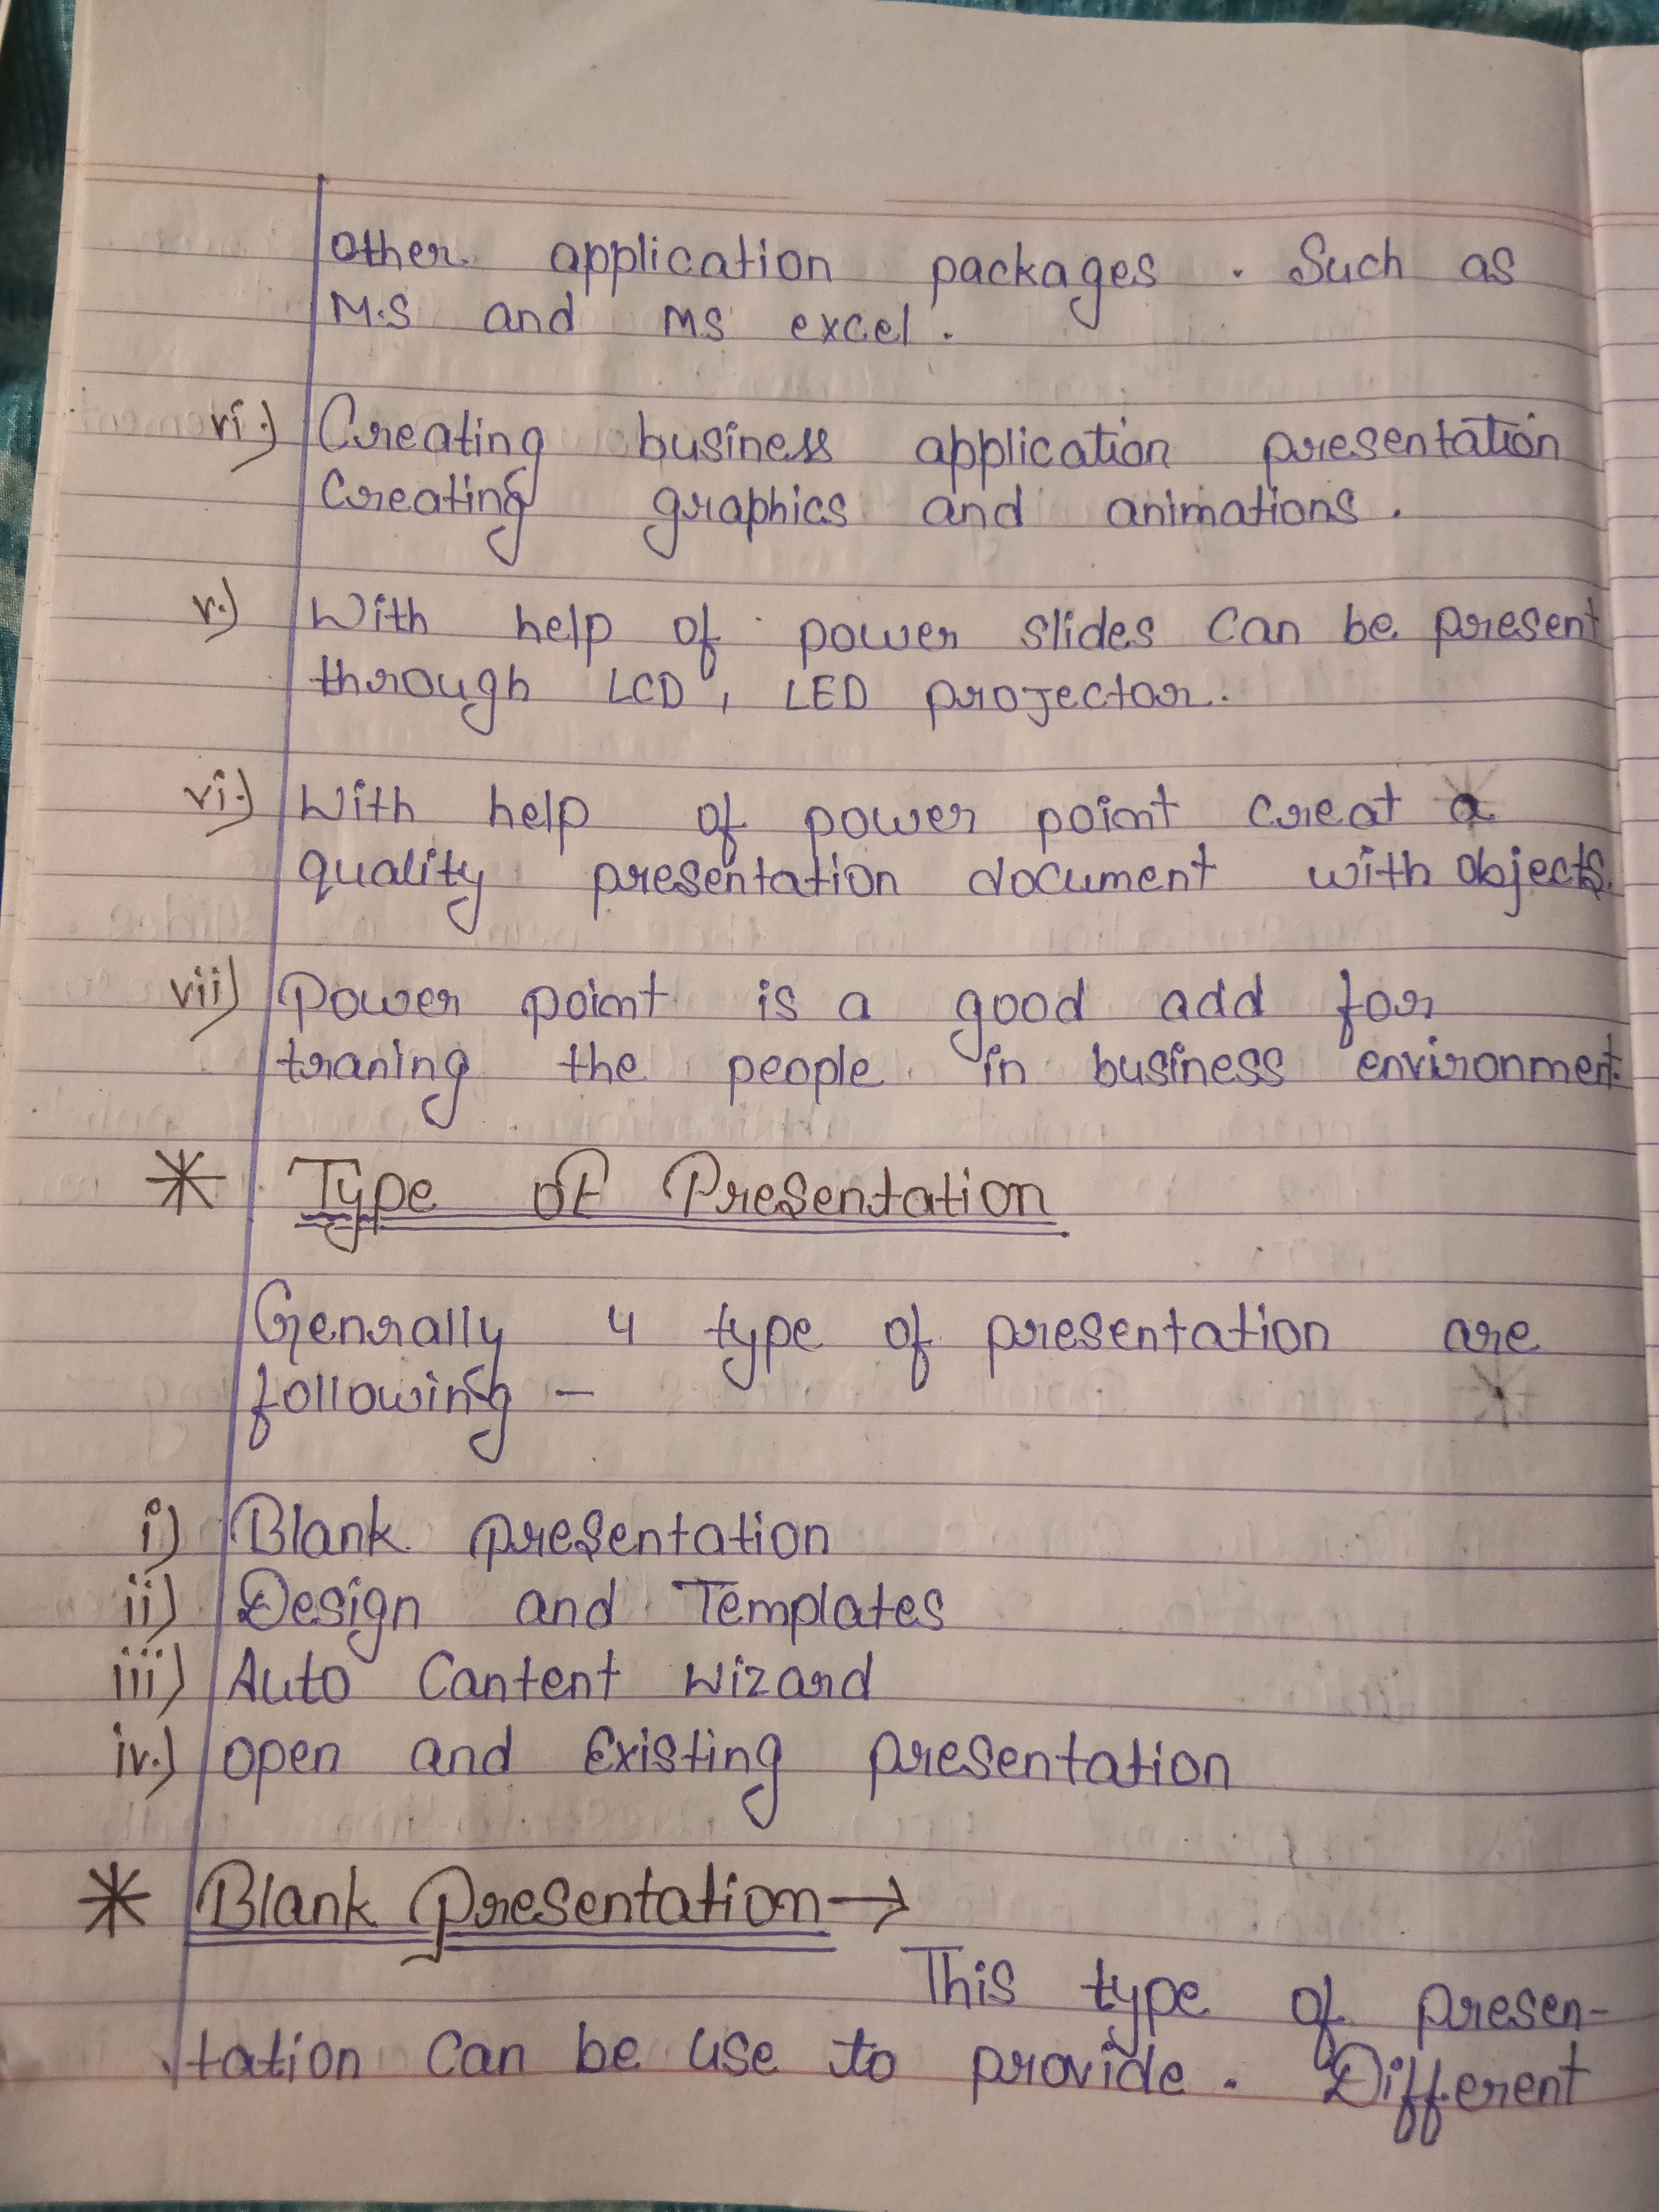 other application packages . Such as
M.S and MS excel .
vi.) Creating business application presentation
Creating graphics and animations .
v.) With help of power slides can be present
through LCD , LED projector .
vi.) With help of power point creat a
quality presentation document with objects.
vii) Power point is a good add for
traning the people in business environment.
* Type of Presentation
Genrally 4 type of presentation are
following -
i) Blank presentation
ii) Design and Templates
iii) Auto Cantent Wizard
iv.) open and Existing presentation
* Blank Presentation →
This type of presen-
tation can be use to provide . Different